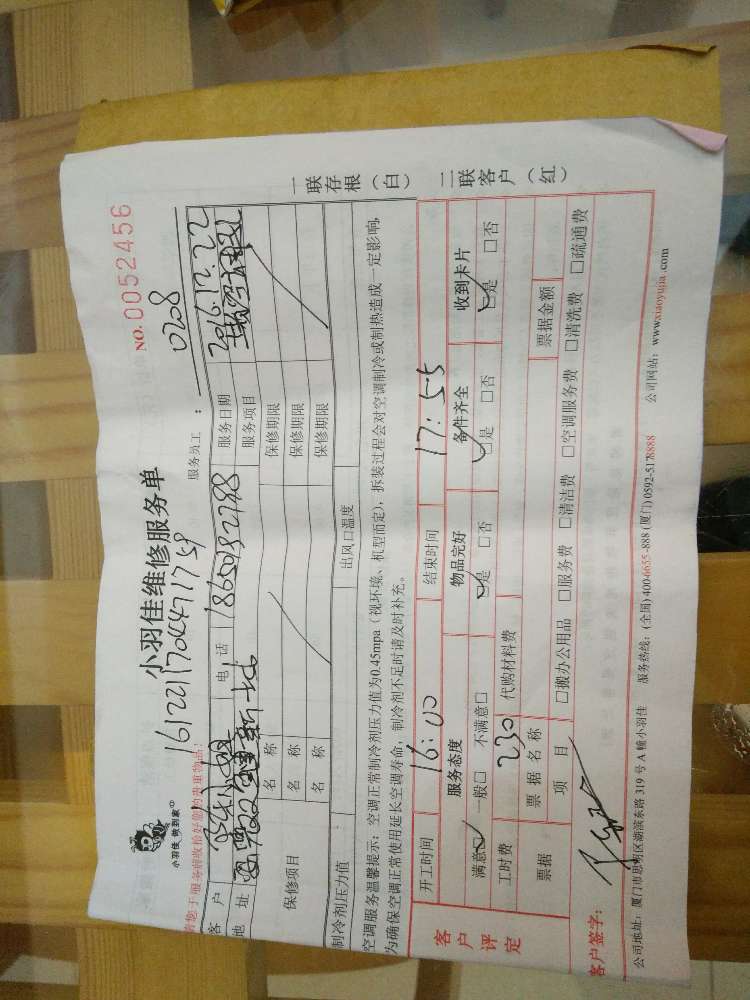 小羽佳维修服务单
NO. 0052456
小羽佳 做到家
1612211704471759
请您于服务前收检好您的贵重物品！
服务员工： 0208
客户 电话 18650182788 服务日期 2016.12.22
地址 服务项目
保修项目 名称 保修期限
名称 保修期限
名称 保修期限
制冷剂压力值 出风口温度
空调服务温馨提示：空调正常制冷剂压力值为0.45mpa（视环境、机型而定），拆装过程会对空调制冷或制热造成一定影响，
为确保空调正常使用延长空调寿命，制冷剂不足时请及时补充。
客户评定
开工时间 16:00 结束时间 17:55
服务态度 物品完好 备件齐全 收到卡片
满意☑ 一般□ 不满意□ ☑是 □否 ☑是 □否 ☑是 □否
工时费 230 代购材料费
票据 票据名称 票据金额
项目 □搬办公用品 □服务费 □清洁费 □空调服务费 □清洗费 □疏通费
客户签字：
公司地址：厦门市思明区湖滨东路319号A幢小羽佳 服务热线：(全国) 400-6655-888 (厦门) 0592-5178888 公司网站：www.xiaoyujia.com
一联存根（白） 二联客户（红）